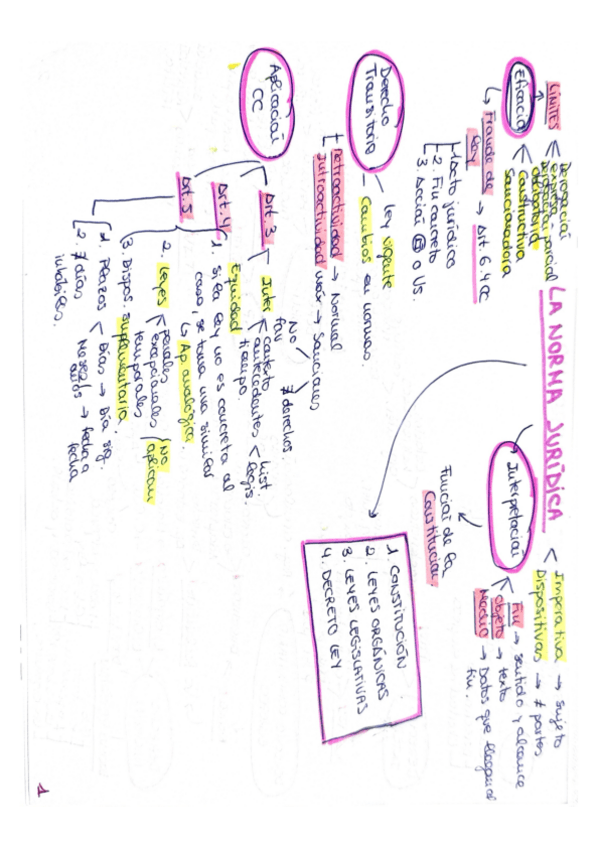 LA NORMA JURÍDICA
Imperativa → sujeto
Dispositivas → ≠ partes
LÍMITES
Derogación
expresa - parcial
Eficacia
obligatoria
Constitutiva
Sancionadora
Fraude de ley → Art. 6.4 CC
1. Acto jurídico
2. Fin concreto
3. Social o us.
Interpretación
Fin → sentido y alcance
Objeto → texto
Medio → Datos que lleguen al
fin.
Función de la
Constitución
1. CONSTITUCIÓN
2. LEYES ORGÁNICAS
3. LEYES LEGISLATIVAS
4. DECRETO LEY
Derecho
Transitorio
ley vigente
Cambios en normas.
Retroactividad → Normal
Irretroactividad → Sanciones
No
fav
≠ derechos.
Aplicación
CC
Art. 3
Inter
contexto
antecedentes < hist.
legis.
tiempo.
Equidad
Art. 4
1. Si la ley no es concreta al
caso, se toma una similar
↳ Ap. analógica.
2. Leyes
penales
excepcionales
temporales
No
aplican
3. Dispos. supletoria
Art. 5
1. Plazos
Días → Día sig.
Meses/
años → fecha a
fecha
2. ≠ días
inhábiles.
1